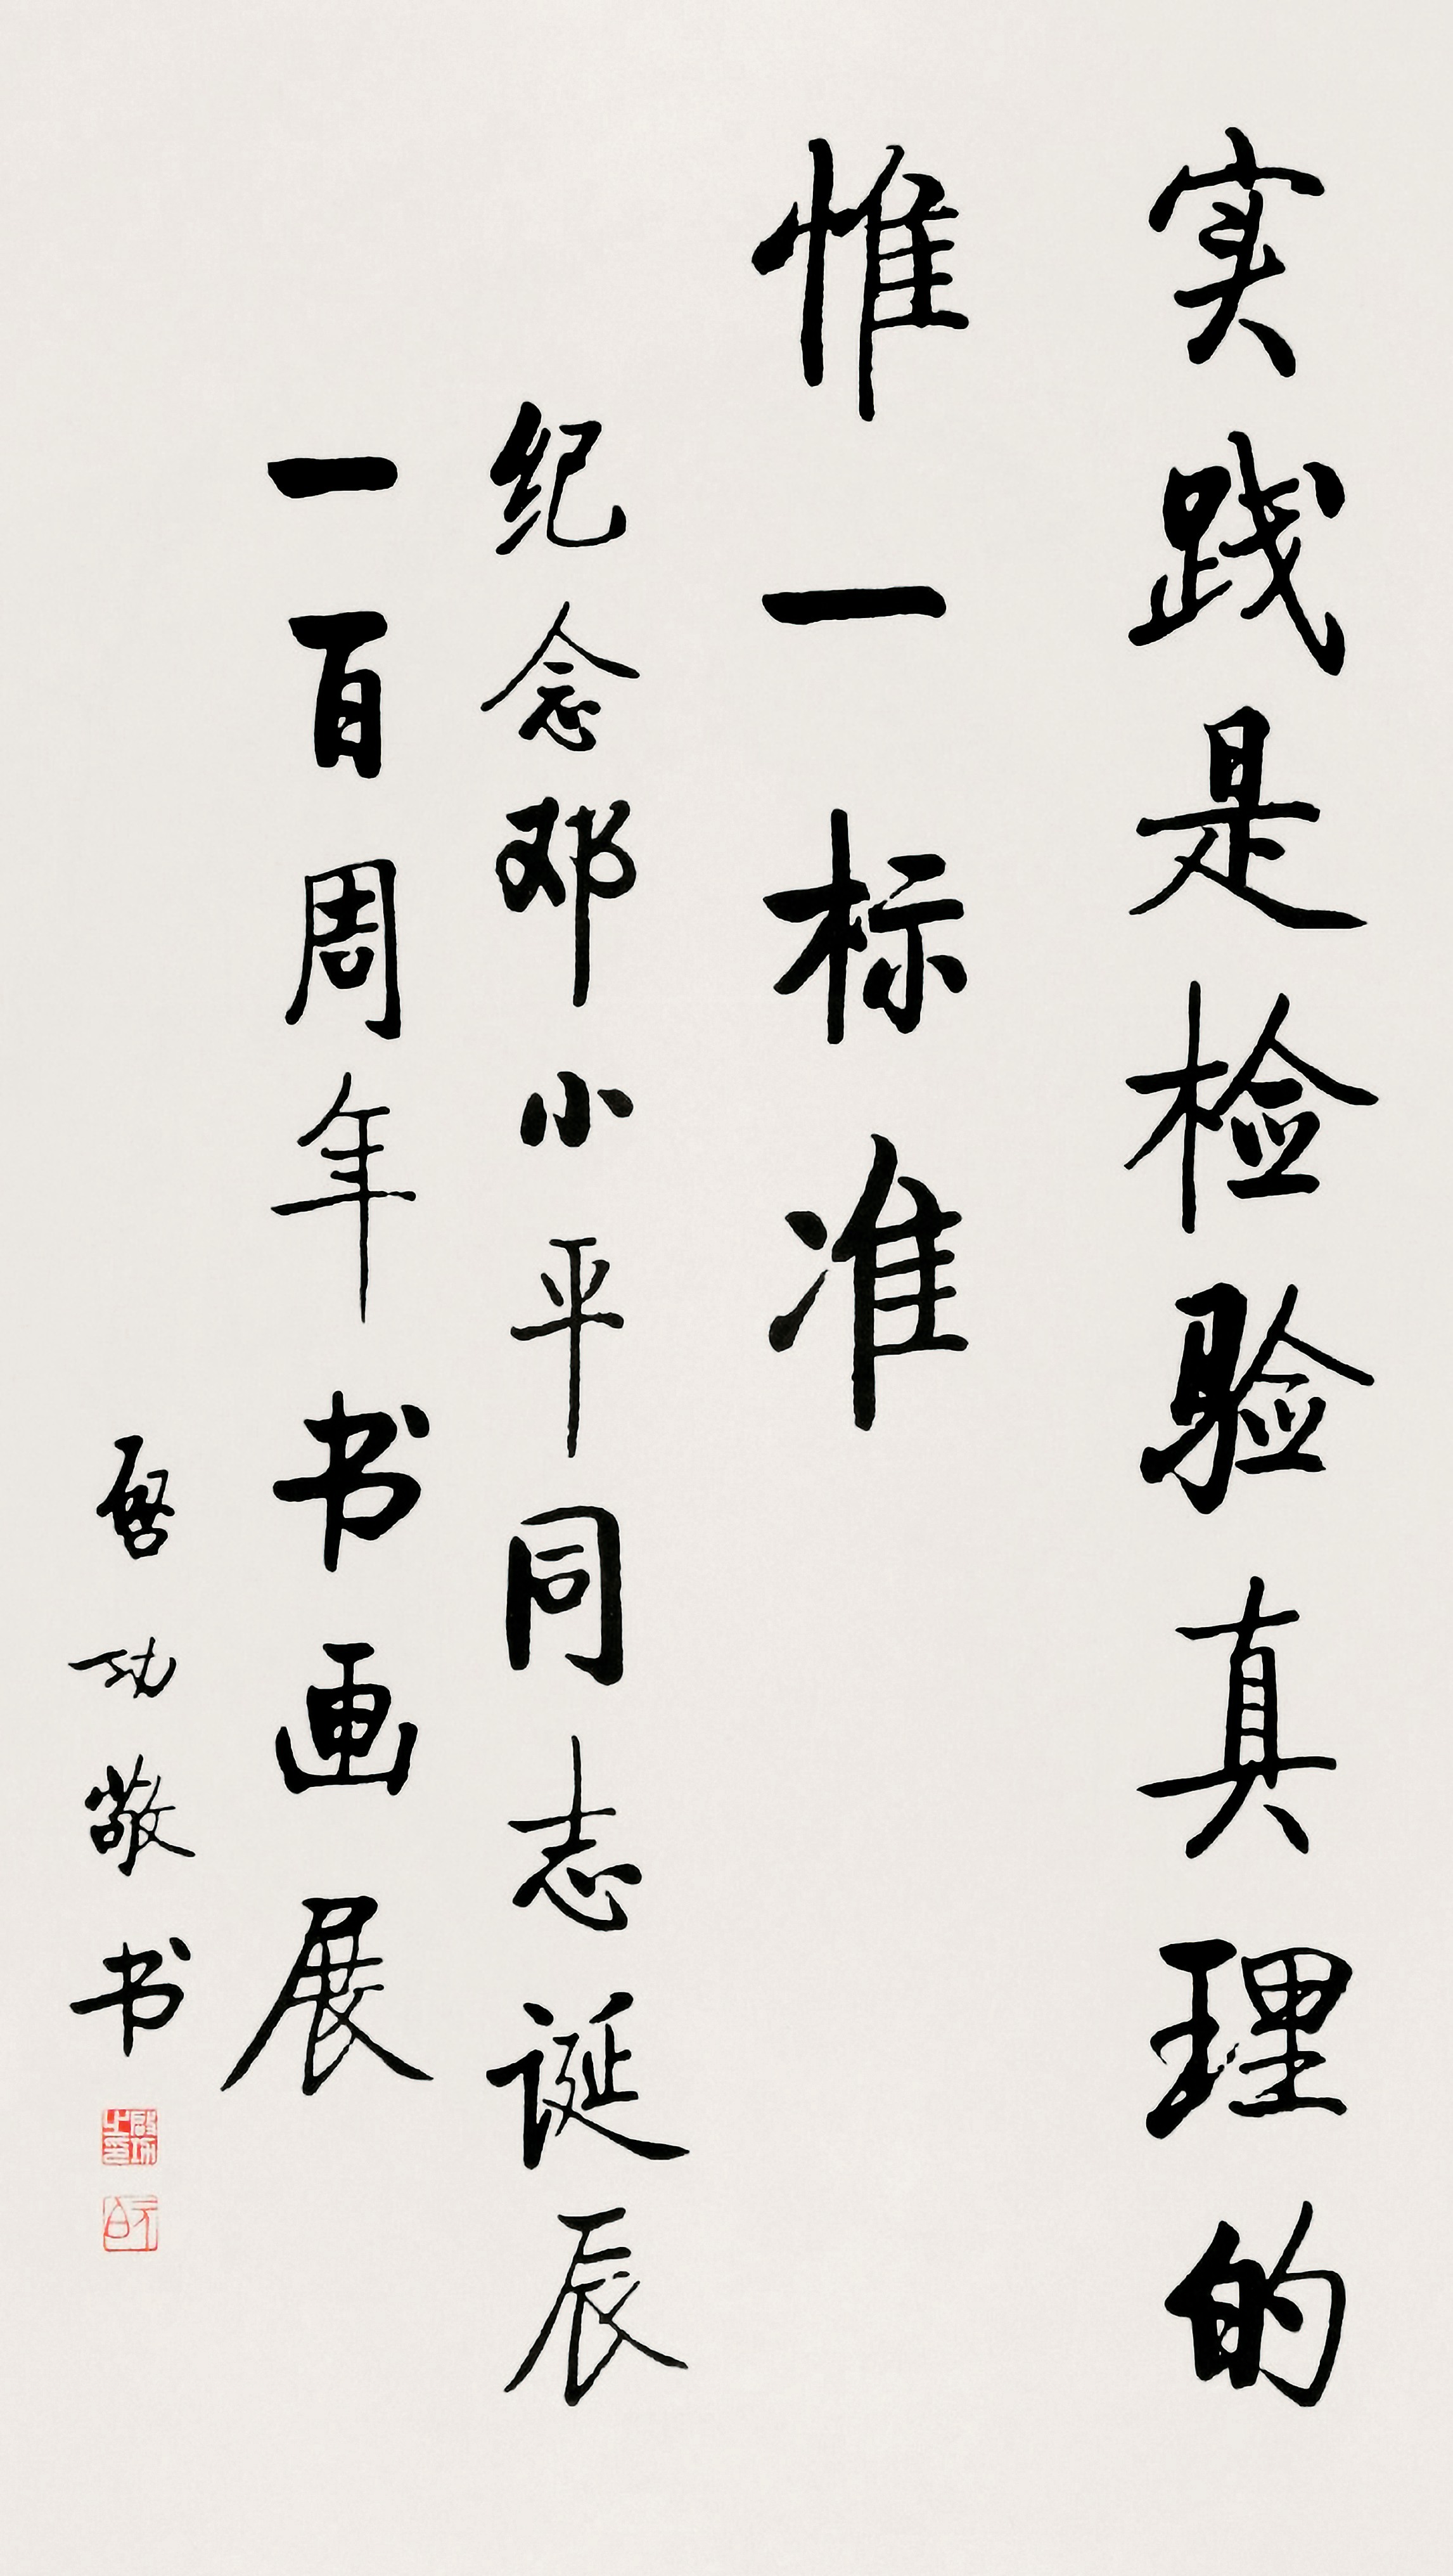 实践是检验真理的
惟一标准
纪念邓小平同志诞辰
一百周年书画展
启功敬书
启功之印